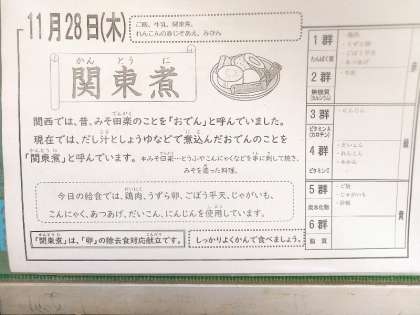 11月28日(木)
ご飯、牛乳、関東煮、
れんこんのあじそあえ、みかん
かんとうに
関東煮
関西では、昔、みそ田楽のことを「おでん」と呼んでいました。
現在では、だし汁としょうゆなどで煮込んだおでんのことを
「関東煮」と呼んでいます。 ※みそ田楽…とうふやこんにゃくなどを串に刺して焼き、
みそを塗った料理。
今日の給食では、鶏肉、うずら卵、ごぼう平天、じゃがいも、
こんにゃく、あつあげ、だいこん、にんじんを使用しています。
「関東煮」は、「卵」の除去食対応献立です。
しっかりよくかんで食べましょう。
1群
たんぱく質
鶏肉
・うずら卵
・ごぼう平天
・あつあげ
2群
無機質
(カルシウム)
・牛乳
3群
ビタミンA
(カロチン)
・にんじん
4群
ビタミンC
・だいこん
・れんこん
・みかん
5群
炭水化物
・ご飯
・じゃがいも
・砂糖
6群
脂質